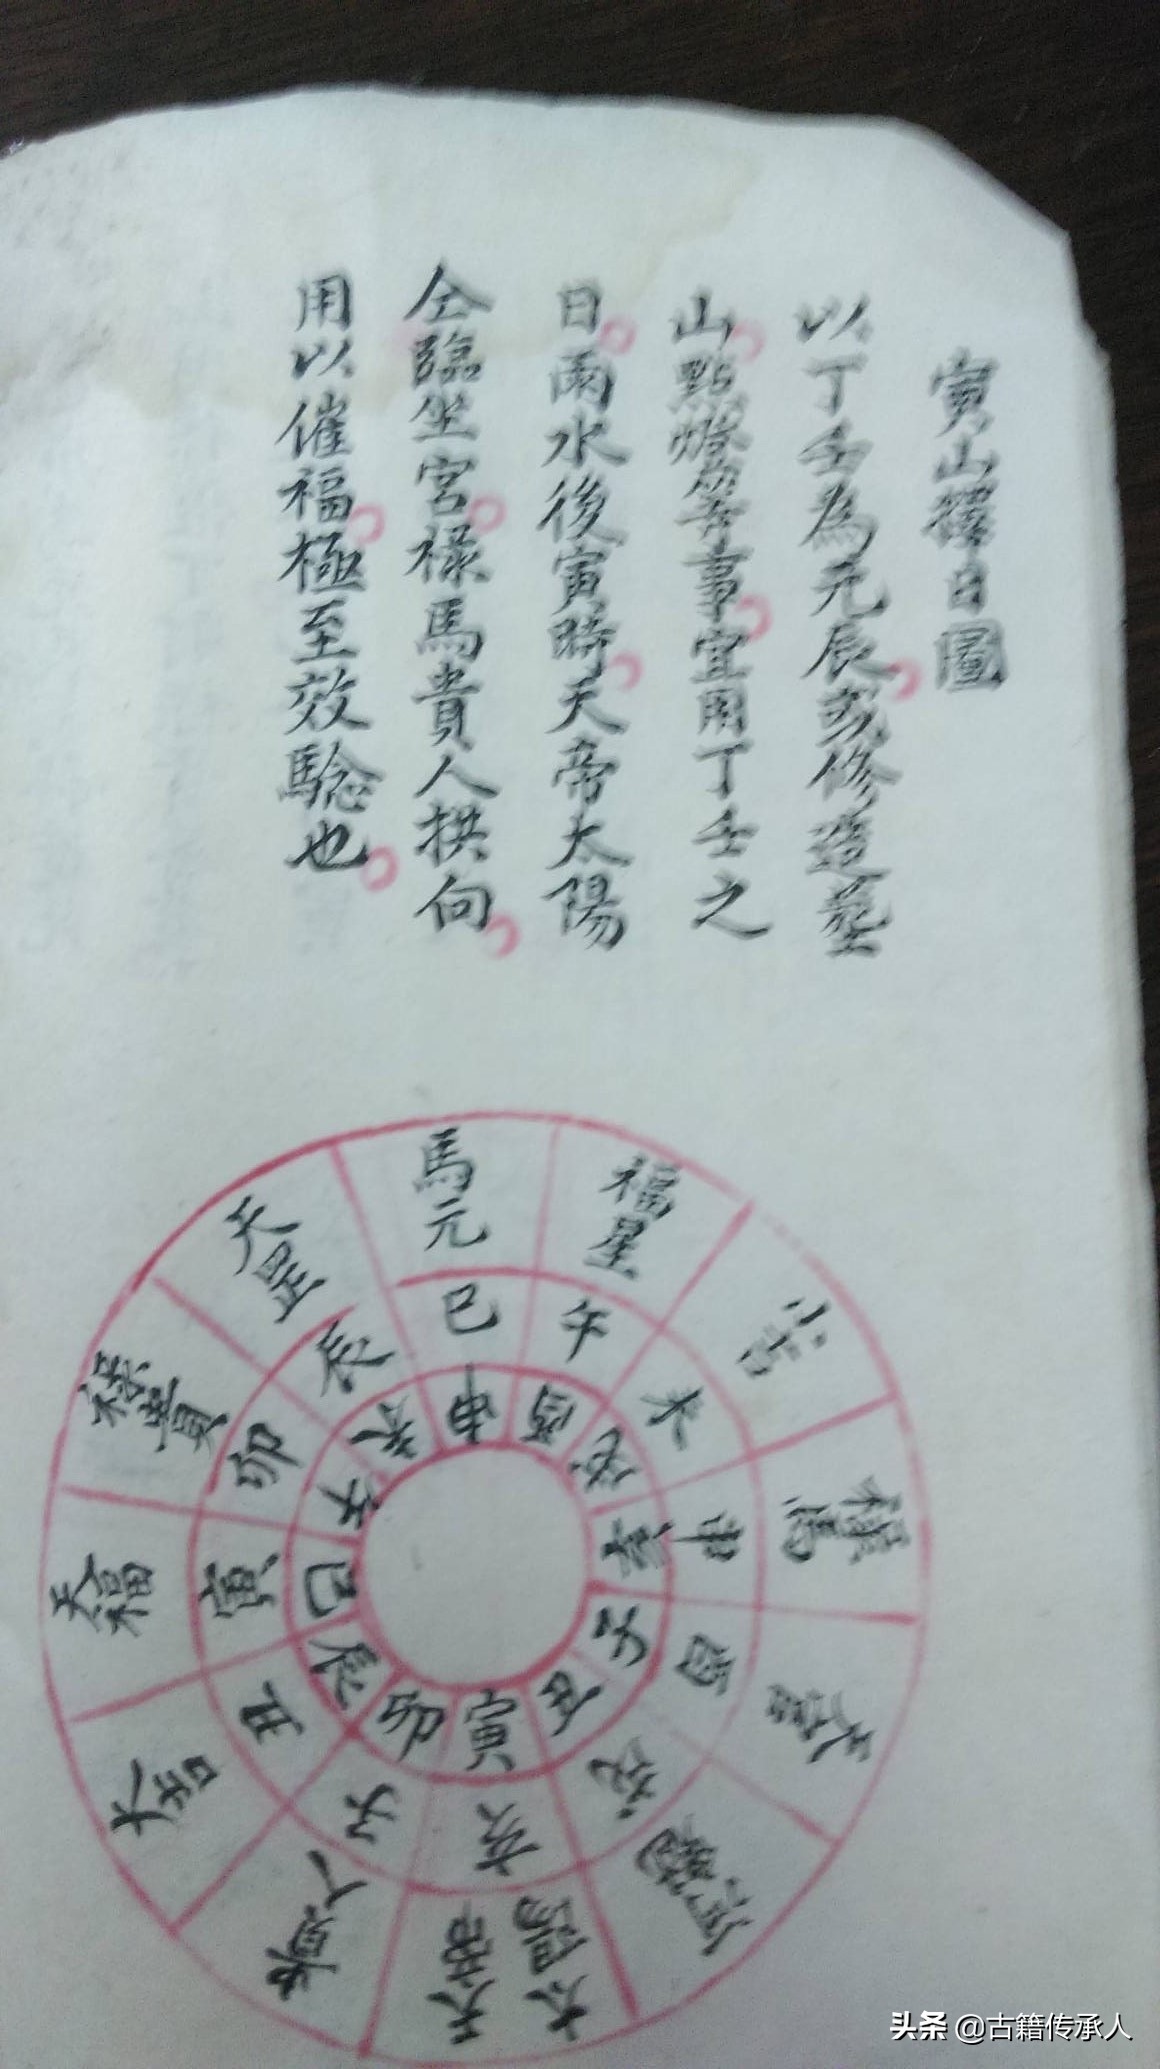 寅山擇日圖
以丁壬為元辰或修造塟
山點燈等事宜用丁壬之
日雨水後寅時天帝太陽
仝臨坐宮祿馬貴人拱向
用以催福極至效騐也
馬元
福星
小吉
祿馬
天喜
河魁
太陽
天帝
貴人
大吉
天福
祿貴
天罡
巳
午
未
申
酉
戌
亥
子
丑
寅
卯
辰
申
酉
戌
亥
子
丑
寅
卯
辰
巳
午
未
头条 @古籍传承人